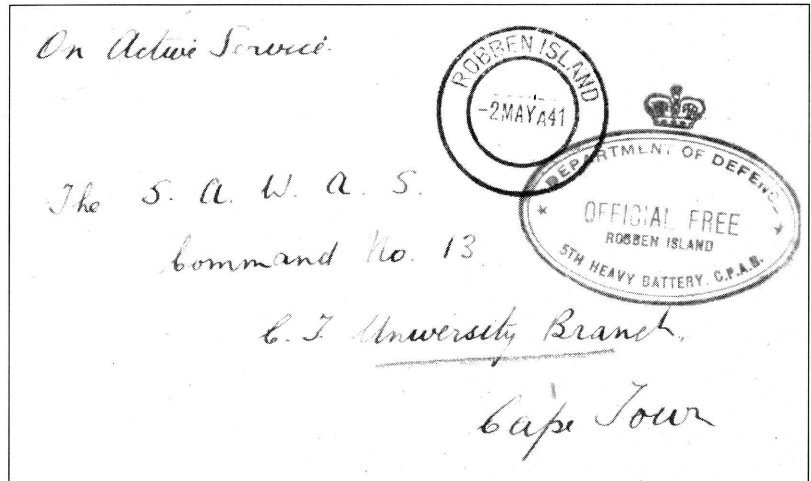 On Active Service.
ROBBEN ISLAND
-2MAYA41
DEPARTMENT OF DEFENCE
OFFICIAL FREE
ROBBEN ISLAND
5TH HEAVY BATTERY. C.P.A.B.
The S. A. W. A. S.
Command No. 13
C. T. University Branch.
Cape Town